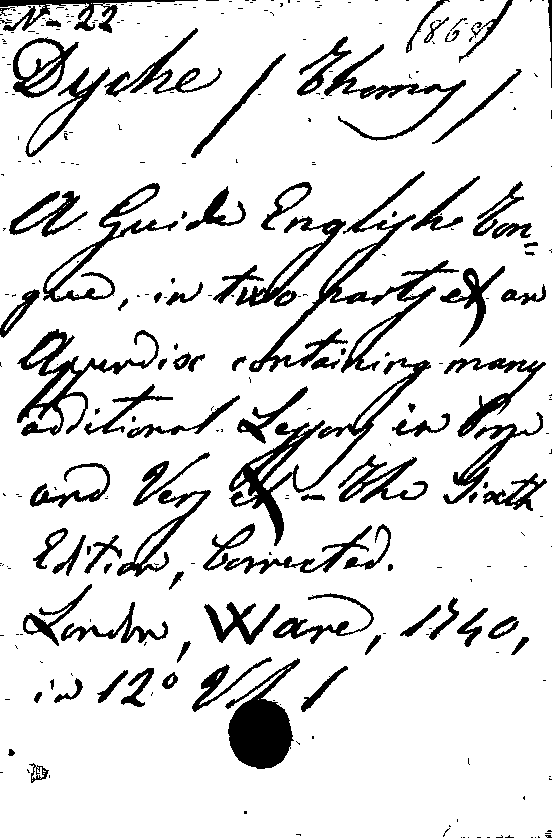 N- 22 (868)
Dyche / Thomas /
A Guide Englishe Ton=
gue, in two partys et an
Apendix containing many
additional Lessons in Prose
and Vers et - The Sixth
Edition, Corrected.
London, Ware, 1740,
in 12º Vol. 1